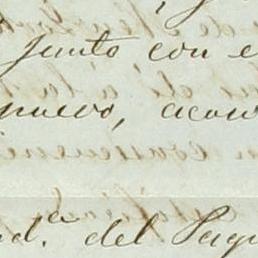 junto con e
nuevo, acom
nd.ª del Paqu